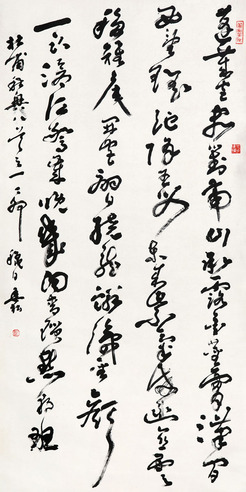 蓬萊宮闕對南山承露金莖霄漢間
西望瑤池降王母東來紫氣滿函關雲
移雉尾開宮扇日繞龍鱗識聖顏
一臥滄江驚歲晚幾回青瑣點朝班
杜甫秋興八首之一